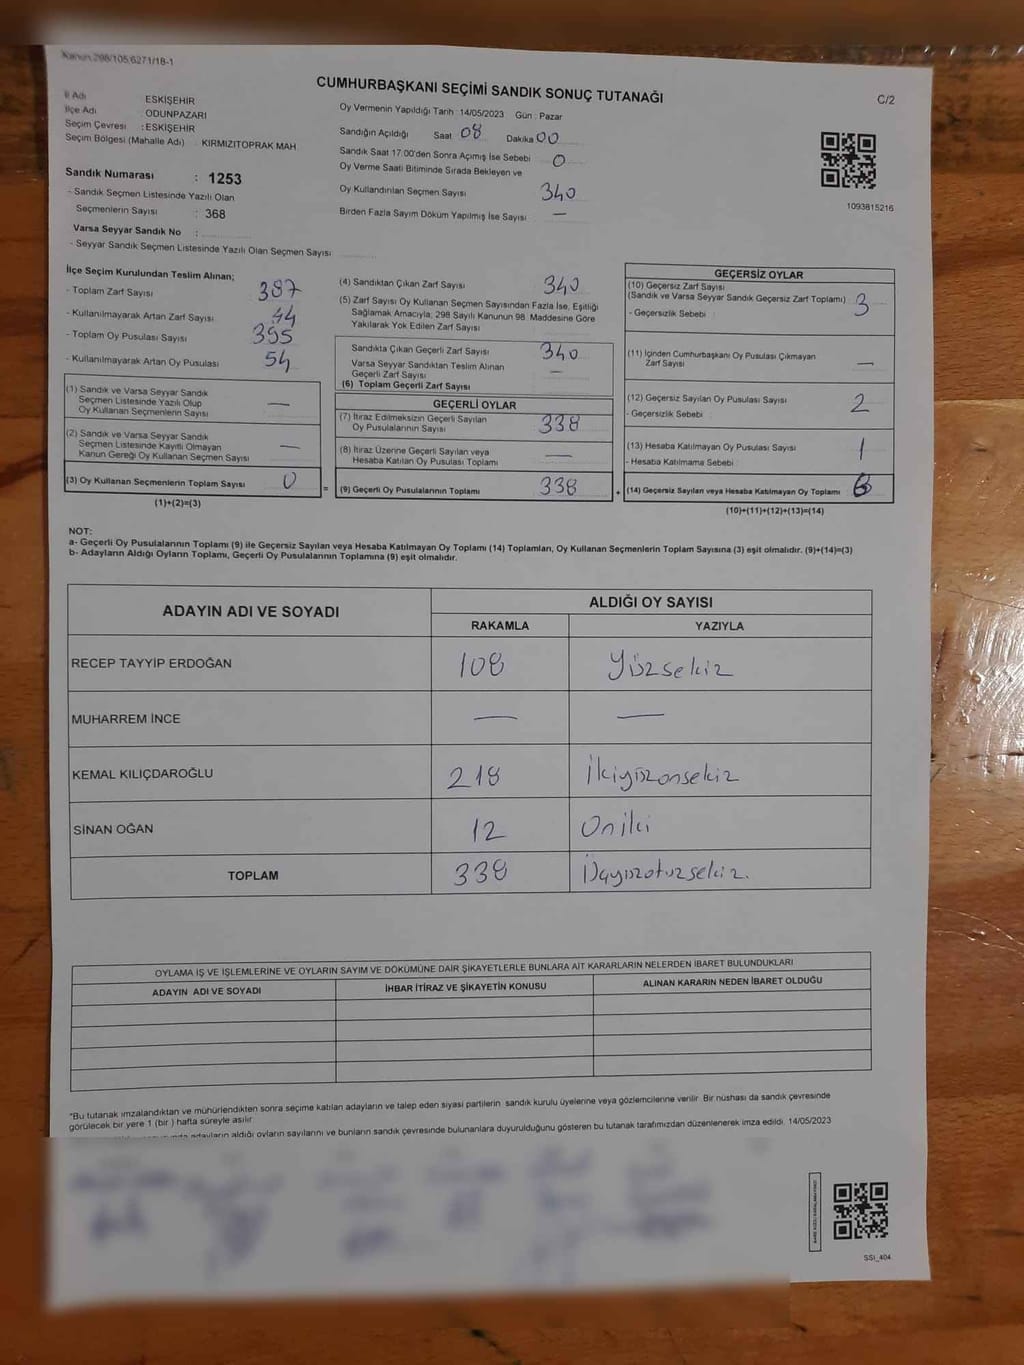 Kanun 298/105,6271/18-1
CUMHURBAŞKANI SEÇİMİ SANDIK SONUÇ TUTANAĞI
C/2
İl Adı ESKİŞEHİR
İlçe Adı : ODUNPAZARI
Seçim Çevresi : ESKİŞEHİR
Seçim Bölgesi (Mahalle Adı) : KIRMIZITOPRAK MAH
Sandık Numarası : 1253
- Sandık Seçmen Listesinde Yazılı Olan
Seçmenlerin Sayısı : 368
Varsa Seyyar Sandık No :
- Seyyar Sandık Seçmen Listesinde Yazılı Olan Seçmen Sayısı:
Oy Vermenin Yapıldığı Tarih : 14/05/2023 Gün : Pazar
Sandığın Açıldığı Saat 08 Dakika 00
Sandık Saat 17:00'den Sonra Açımış İse Sebebi 0
Oy Verme Saati Bitiminde Sırada Bekleyen ve
Oy Kullandırılan Seçmen Sayısı 340
Birden Fazla Sayım Döküm Yapılmış İse Sayısı —
1093815216
İlçe Seçim Kurulundan Teslim Alınan;
- Toplam Zarf Sayısı 387
- Kullanılmayarak Artan Zarf Sayısı 44
- Toplam Oy Pusulası Sayısı 395
- Kullanılmayarak Artan Oy Pusulası 54
(1) Sandık ve Varsa Seyyar Sandık
Seçmen Listesinde Yazılı Olup
Oy Kullanan Seçmenlerin Sayısı —
(2) Sandık ve Varsa Seyyar Sandık
Seçmen Listesinde Kayıtlı Olmayan
Kanun Gereği Oy Kullanan Seçmen Sayısı —
(3) Oy Kullanan Seçmenlerin Toplam Sayısı 0
(1)+(2)=(3)
(4) Sandıktan Çıkan Zarf Sayısı 340
(5) Zarf Sayısı Oy Kullanan Seçmen Sayısından Fazla İse, Eşitliği
Sağlamak Amacıyla, 298 Sayılı Kanunun 98. Maddesine Göre
Yakılarak Yok Edilen Zarf Sayısı
Sandıkta Çıkan Geçerli Zarf Sayısı 340
Varsa Seyyar Sandıktan Teslim Alınan
Geçerli Zarf Sayısı —
(6) Toplam Geçerli Zarf Sayısı
GEÇERLİ OYLAR
(7) İtiraz Edilmeksizin Geçerli Sayılan
Oy Pusulalarının Sayısı 338
(8) İtiraz Üzerine Geçerli Sayılan veya
Hesaba Katılan Oy Pusulası Toplamı —
= (9) Geçerli Oy Pusulalarının Toplamı 338 +
GEÇERSİZ OYLAR
(10) Geçersiz Zarf Sayısı
(Sandık ve Varsa Seyyar Sandık Geçersiz Zarf Toplamı) 3
- Geçersizlik Sebebi :
(11) İçinden Cumhurbaşkanı Oy Pusulası Çıkmayan
Zarf Sayısı —
(12) Geçersiz Sayılan Oy Pusulası Sayısı 2
- Geçersizlik Sebebi :
(13) Hesaba Katılmayan Oy Pusulası Sayısı 1
- Hesaba Katılmama Sebebi :
(14) Geçersiz Sayılan veya Hesaba Katılmayan Oy Toplamı
(10)+(11)+(12)+(13)=(14)
NOT:
a- Geçerli Oy Pusulalarının Toplamı (9) ile Geçersiz Sayılan veya Hesaba Katılmayan Oy Toplamı (14) Toplamları, Oy Kullanan Seçmenlerin Toplam Sayısına (3) eşit olmalıdır. (9)+(14)=(3)
b- Adayların Aldığı Oyların Toplamı, Geçerli Oy Pusulalarının Toplamına (9) eşit olmalıdır.
ADAYIN ADI VE SOYADI
ALDIĞI OY SAYISI
RAKAMLA YAZIYLA
RECEP TAYYİP ERDOĞAN 108 Yüzsekiz
MUHARREM İNCE — —
KEMAL KILIÇDAROĞLU 218 İkiyüzonsekiz
SİNAN OĞAN 12 Oniki
TOPLAM 338 Üçyüzotuzsekiz.
OYLAMA İŞ VE İŞLEMLERİNE VE OYLARIN SAYIM VE DÖKÜMÜNE DAİR ŞİKAYETLERLE BUNLARA AİT KARARLARIN NELERDEN İBARET BULUNDUKLARI
ADAYIN ADI VE SOYADI İHBAR İTİRAZ VE ŞİKAYETİN KONUSU ALINAN KARARIN NEDEN İBARET OLDUĞU
"Bu tutanak imzalandıktan ve mühürlendikten sonra seçime katılan adayların ve talep eden siyasi partilerin sandık kurulu üyelerine veya gözlemcilerine verilir. Bir nüshası da sandık çevresinde
görülecek bir yere 1 (bir) hafta süreyle asılır.
adayların aldığı oyların sayılarını ve bunların sandık çevresinde bulunanlara duyurulduğunu gösteren bu tutanak tarafımızdan düzenlenerek imza edildi. 14/05/2023
SSI_404